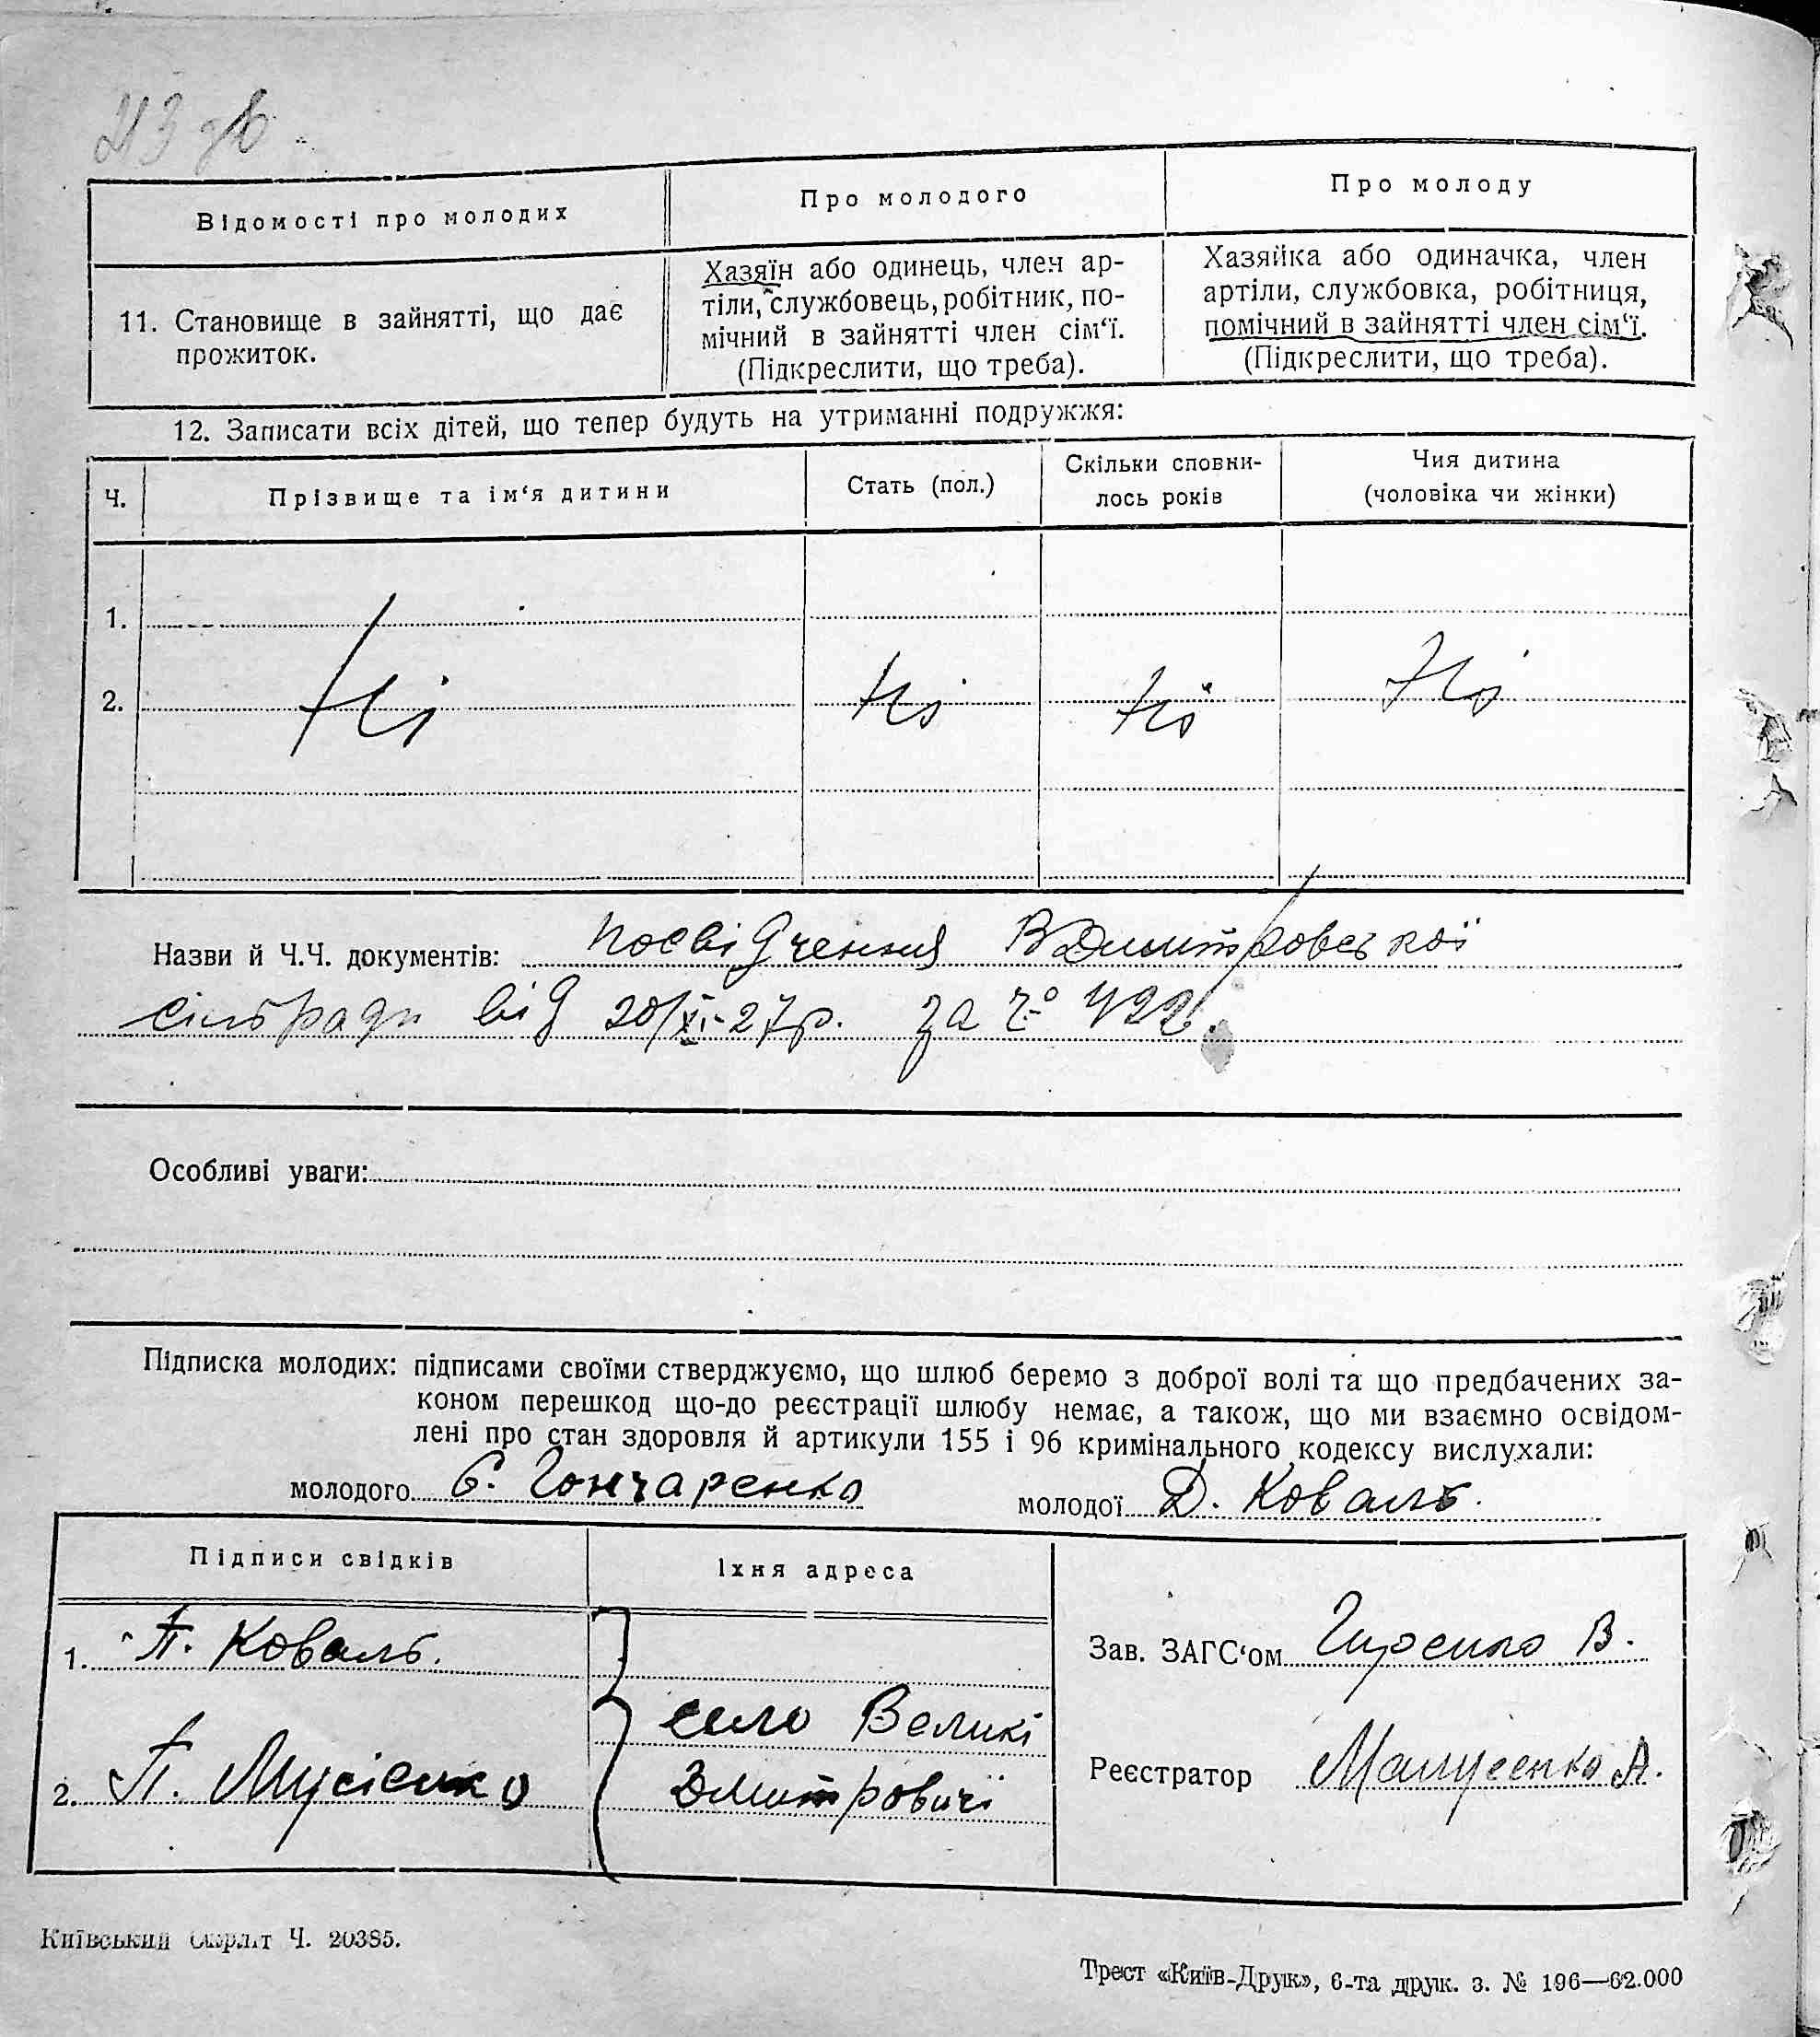 Відомості про молодих
Про молодого
Про молоду
11. Становище в зайнятті, що дає
прожиток.
Хазяїн або одинець, член ар-
тіли, службовець, робітник, по-
мічний в зайнятті член сім‘ї.
(Підкреслити, що треба).
Хазяйка або одиначка, член
артіли, службовка, робітниця,
помічний в зайнятті член сім‘ї.
(Підкреслити, що треба).
12. Записати всіх дітей, що тепер будуть на утриманні подружжя:
Ч.
Прізвище та ім‘я дитини
Стать (пол.)
Скільки сповни-
лось років
Чия дитина
(чоловіка чи жінки)
1.
2. Ні Ні Ні Ні
Назви й Ч.Ч. документів: посвідчення ВДмитровської
сільради від 20/XI-27р. за №
Особливі уваги:
Підписка молодих: підписами своїми стверджуємо, що шлюб беремо з доброї волі та що предбачених за-
коном перешкод що-до реєстрації шлюбу немає, а також, що ми взаємно освідом-
лені про стан здоровля й артикули 155 і 96 кримінального кодексу вислухали:
молодого Є. Гончаренко молодої Д. Коваль.
Підписи свідків
Їхня адреса
1. П. Коваль.
2. П. Мусієнко
село Великі
Дмитровичі
Зав. ЗАГС‘ом В.
Реєстратор А.
Київський Окрліт Ч. 20385.
Трест «Київ-Друк», 6-та друк. з. № 196—62.000